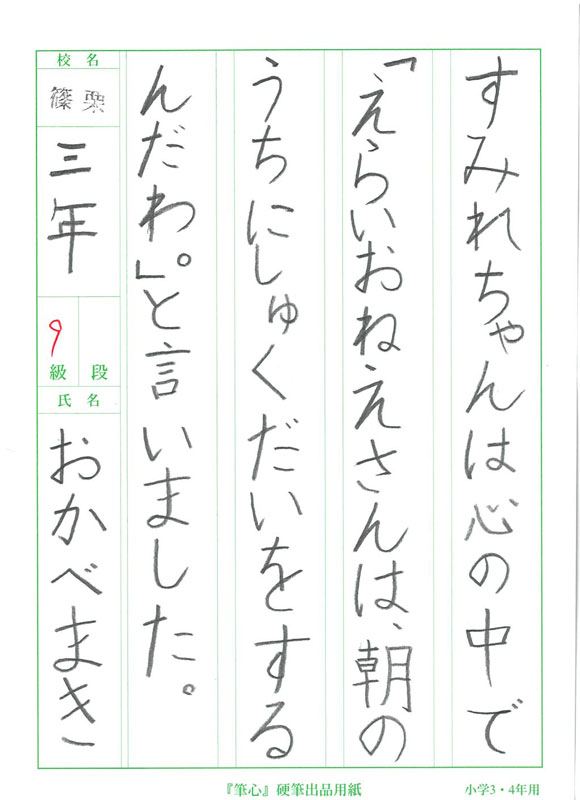 すみれちゃんは心の中で
「えらいおねえさんは、朝の
うちにしゅくだいをする
んだわ。」と言いました。
校名
篠栗
三年
9
級 段
氏名
おかべまき
『筆心』硬筆出品用紙
小学3・4年用